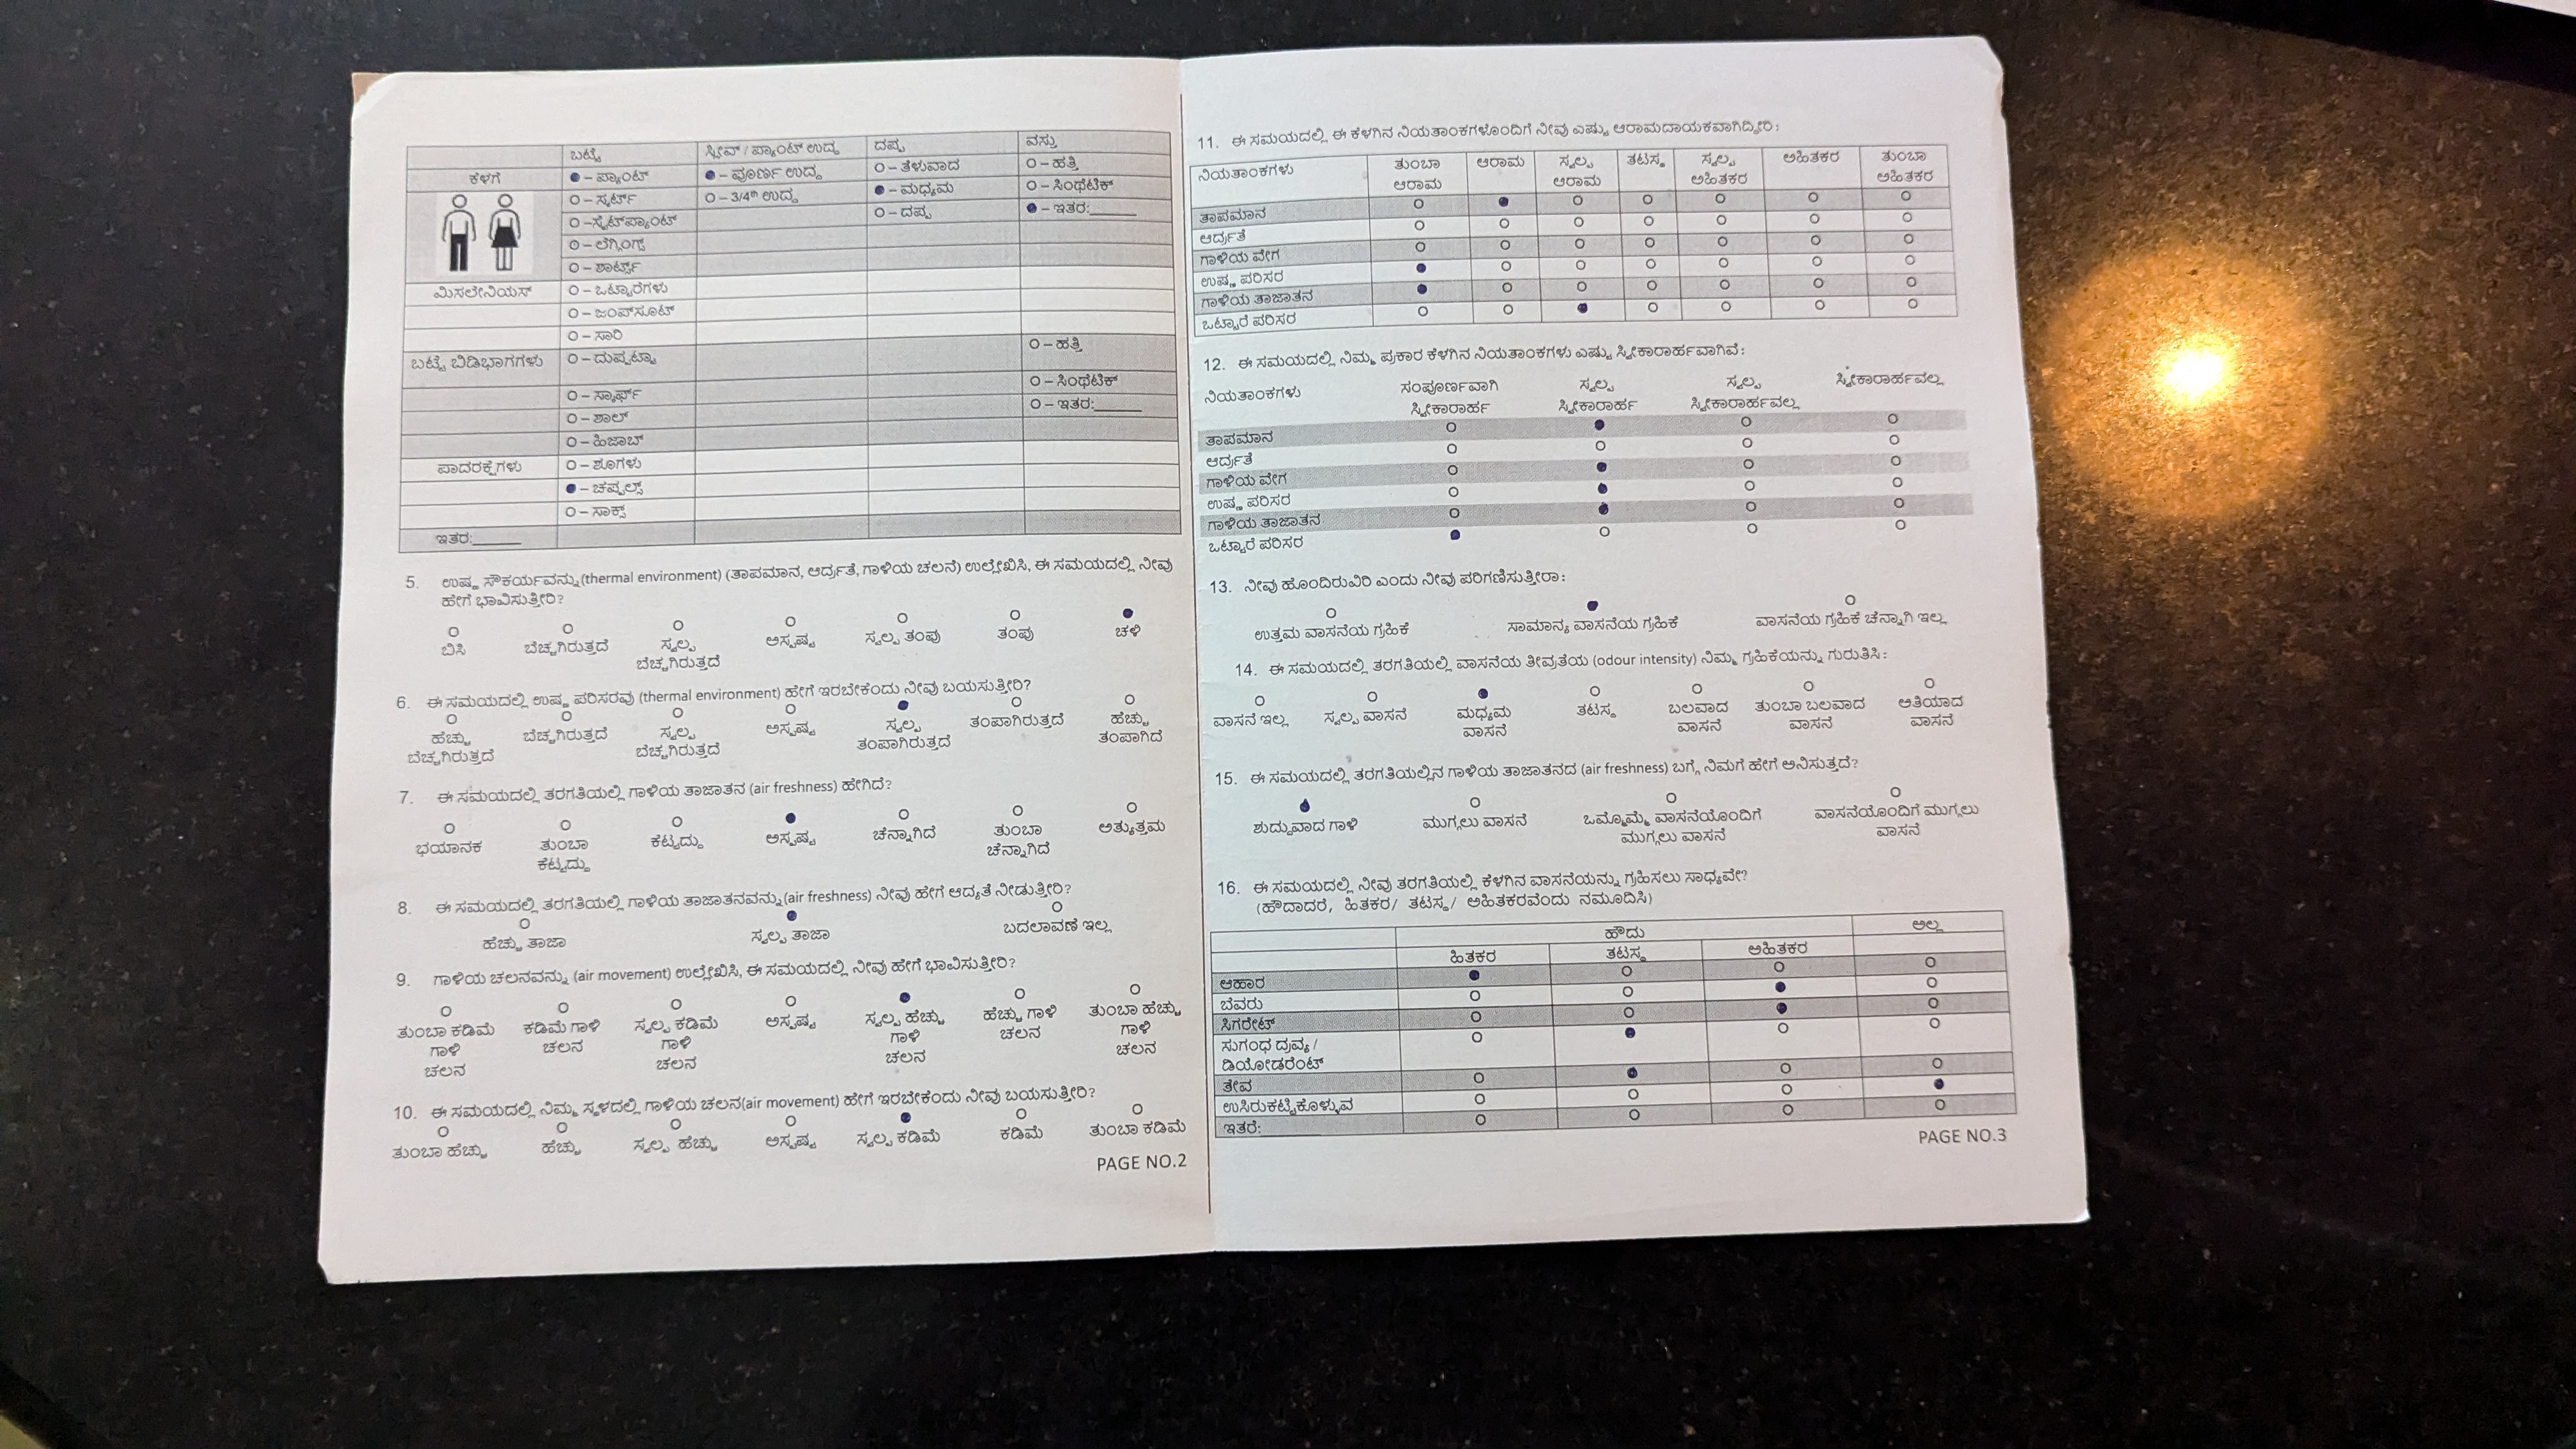 ಬಟ್ಟೆ ಸ್ಲೀವ್ / ಪ್ಯಾಂಟ್ ಉದ್ದ ದಪ್ಪ ವಸ್ತು
ಕೆಳಗೆ ●–ಪ್ಯಾಂಟ್ ●–ಪೂರ್ಣ ಉದ್ದ O–ತೆಳುವಾದ O–ಹತ್ತಿ
O–ಸ್ಕರ್ಟ್ O–3/4th ಉದ್ದ ●–ಮಧ್ಯಮ O–ಸಿಂಥೆಟಿಕ್
O–ಸ್ವೆಟ್‌ಪ್ಯಾಂಟ್ O–ದಪ್ಪ ●–ಇತರ:______
O–ಲೆಗ್ಗಿಂಗ್ಸ್
O–ಶಾರ್ಟ್ಸ್
ಮಿಸಲೇನಿಯಸ್ O–ಒಟ್ಟಾರೆಗಳು
O–ಜಂಪ್‌ಸೂಟ್
O–ಸಾರಿ
ಬಟ್ಟೆ ಬಿಡಿಭಾಗಗಳು O–ದುಪ್ಪಟ್ಟಾ O–ಹತ್ತಿ
O–ಸ್ಕಾರ್ಫ್ O–ಸಿಂಥೆಟಿಕ್
O–ಶಾಲ್ O–ಇತರ:______
O–ಹಿಜಾಬ್
ಪಾದರಕ್ಷೆಗಳು O–ಶೂಗಳು
●–ಚಪ್ಪಲ್ಸ್
O–ಸಾಕ್ಸ್
ಇತರ:______
5. ಉಷ್ಣ ಸೌಕರ್ಯವನ್ನು(thermal environment) (ತಾಪಮಾನ, ಆರ್ದ್ರತೆ, ಗಾಳಿಯ ಚಲನೆ) ಉಲ್ಲೇಖಿಸಿ, ಈ ಸಮಯದಲ್ಲಿ ನೀವು
ಹೇಗೆ ಭಾವಿಸುತ್ತೀರಿ?
O O O O O O ●
ಬಿಸಿ ಬೆಚ್ಚಗಿರುತ್ತದೆ ಸ್ವಲ್ಪ ಅಸ್ಪಷ್ಟ ಸ್ವಲ್ಪ ತಂಪು ತಂಪು ಚಳಿ
ಬೆಚ್ಚಗಿರುತ್ತದೆ
6. ಈ ಸಮಯದಲ್ಲಿ ಉಷ್ಣ ಪರಿಸರವು (thermal environment) ಹೇಗೆ ಇರಬೇಕೆಂದು ನೀವು ಬಯಸುತ್ತೀರಿ?
O O O O ● O O
ಹೆಚ್ಚು ಬೆಚ್ಚಗಿರುತ್ತದೆ ಸ್ವಲ್ಪ ಅಸ್ಪಷ್ಟ ಸ್ವಲ್ಪ ತಂಪಾಗಿರುತ್ತದೆ ಹೆಚ್ಚು
ಬೆಚ್ಚಗಿರುತ್ತದೆ ಬೆಚ್ಚಗಿರುತ್ತದೆ ತಂಪಾಗಿರುತ್ತದೆ ತಂಪಾಗಿದೆ
7. ಈ ಸಮಯದಲ್ಲಿ ತರಗತಿಯಲ್ಲಿ ಗಾಳಿಯ ತಾಜಾತನ (air freshness) ಹೇಗಿದೆ?
O O O ● O O O
ಭಯಾನಕ ತುಂಬಾ ಕೆಟ್ಟದ್ದು ಅಸ್ಪಷ್ಟ ಚೆನ್ನಾಗಿದೆ ತುಂಬಾ ಅತ್ಯುತ್ತಮ
ಕೆಟ್ಟದ್ದು ಚೆನ್ನಾಗಿದೆ
8. ಈ ಸಮಯದಲ್ಲಿ ತರಗತಿಯಲ್ಲಿ ಗಾಳಿಯ ತಾಜಾತನವನ್ನು(air freshness) ನೀವು ಹೇಗೆ ಆದ್ಯತೆ ನೀಡುತ್ತೀರಿ?
O ● O
ಹೆಚ್ಚು ತಾಜಾ ಸ್ವಲ್ಪ ತಾಜಾ ಬದಲಾವಣೆ ಇಲ್ಲ
9. ಗಾಳಿಯ ಚಲನವನ್ನು (air movement) ಉಲ್ಲೇಖಿಸಿ, ಈ ಸಮಯದಲ್ಲಿ ನೀವು ಹೇಗೆ ಭಾವಿಸುತ್ತೀರಿ?
O O O O ● O O
ತುಂಬಾ ಕಡಿಮೆ ಕಡಿಮೆ ಗಾಳಿ ಸ್ವಲ್ಪ ಕಡಿಮೆ ಅಸ್ಪಷ್ಟ ಸ್ವಲ್ಪ ಹೆಚ್ಚು ಹೆಚ್ಚು ಗಾಳಿ ತುಂಬಾ ಹೆಚ್ಚು
ಗಾಳಿ ಚಲನ ಗಾಳಿ ಗಾಳಿ ಚಲನ ಗಾಳಿ
ಚಲನ ಚಲನ ಚಲನ ಚಲನ
10. ಈ ಸಮಯದಲ್ಲಿ ನಿಮ್ಮ ಸ್ಥಳದಲ್ಲಿ ಗಾಳಿಯ ಚಲನ(air movement) ಹೇಗೆ ಇರಬೇಕೆಂದು ನೀವು ಬಯಸುತ್ತೀರಿ?
O O O O ● O O
ತುಂಬಾ ಹೆಚ್ಚು ಹೆಚ್ಚು ಸ್ವಲ್ಪ ಹೆಚ್ಚು ಅಸ್ಪಷ್ಟ ಸ್ವಲ್ಪ ಕಡಿಮೆ ಕಡಿಮೆ ತುಂಬಾ ಕಡಿಮೆ
PAGE NO.2
11. ಈ ಸಮಯದಲ್ಲಿ ಈ ಕೆಳಗಿನ ನಿಯತಾಂಕಗಳೊಂದಿಗೆ ನೀವು ಎಷ್ಟು ಆರಾಮದಾಯಕವಾಗಿದ್ದೀರಿ:
ನಿಯತಾಂಕಗಳು ತುಂಬಾ ಆರಾಮ ಸ್ವಲ್ಪ ತಟಸ್ಥ ಸ್ವಲ್ಪ ಅಹಿತಕರ ತುಂಬಾ
ಆರಾಮ ಆರಾಮ ಅಹಿತಕರ ಅಹಿತಕರ
ತಾಪಮಾನ O ● O O O O O
ಆರ್ದ್ರತೆ O O O O O O O
ಗಾಳಿಯ ವೇಗ O O O O O O O
ಉಷ್ಣ ಪರಿಸರ ● O O O O O O
ಗಾಳಿಯ ತಾಜಾತನ ● O O O O O O
ಒಟ್ಟಾರೆ ಪರಿಸರ O O ● O O O O
12. ಈ ಸಮಯದಲ್ಲಿ ನಿಮ್ಮ ಪ್ರಕಾರ ಕೆಳಗಿನ ನಿಯತಾಂಕಗಳು ಎಷ್ಟು ಸ್ವೀಕಾರಾರ್ಹವಾಗಿವೆ:
ನಿಯತಾಂಕಗಳು ಸಂಪೂರ್ಣವಾಗಿ ಸ್ವಲ್ಪ ಸ್ವಲ್ಪ ಸ್ವೀಕಾರಾರ್ಹವಲ್ಲ
ಸ್ವೀಕಾರಾರ್ಹ ಸ್ವೀಕಾರಾರ್ಹ ಸ್ವೀಕಾರಾರ್ಹವಲ್ಲ
ತಾಪಮಾನ O ● O O
ಆರ್ದ್ರತೆ O O O O
ಗಾಳಿಯ ವೇಗ O ● O O
ಉಷ್ಣ ಪರಿಸರ O ● O O
ಗಾಳಿಯ ತಾಜಾತನ O ● O O
ಒಟ್ಟಾರೆ ಪರಿಸರ ● O O O
13. ನೀವು ಹೊಂದಿರುವಿರಿ ಎಂದು ನೀವು ಪರಿಗಣಿಸುತ್ತೀರಾ:
O ● O
ಉತ್ತಮ ವಾಸನೆಯ ಗ್ರಹಿಕೆ ಸಾಮಾನ್ಯ ವಾಸನೆಯ ಗ್ರಹಿಕೆ ವಾಸನೆಯ ಗ್ರಹಿಕೆ ಚೆನ್ನಾಗಿ ಇಲ್ಲ
14. ಈ ಸಮಯದಲ್ಲಿ ತರಗತಿಯಲ್ಲಿ ವಾಸನೆಯ ತೀವ್ರತೆಯ (odour intensity) ನಿಮ್ಮ ಗ್ರಹಿಕೆಯನ್ನು ಗುರುತಿಸಿ:
O O ● O O O O
ವಾಸನೆ ಇಲ್ಲ ಸ್ವಲ್ಪ ವಾಸನೆ ಮಧ್ಯಮ ತಟಸ್ಥ ಬಲವಾದ ತುಂಬಾ ಬಲವಾದ ಅತಿಯಾದ
ವಾಸನೆ ವಾಸನೆ ವಾಸನೆ ವಾಸನೆ
15. ಈ ಸಮಯದಲ್ಲಿ ತರಗತಿಯಲ್ಲಿನ ಗಾಳಿಯ ತಾಜಾತನದ (air freshness) ಬಗ್ಗೆ ನಿಮಗೆ ಹೇಗೆ ಅನಿಸುತ್ತದೆ?
● O O O
ಶುದ್ಧವಾದ ಗಾಳಿ ಮುಗ್ಗಲು ವಾಸನೆ ಒಮ್ಮೊಮ್ಮೆ ವಾಸನೆಯೊಂದಿಗೆ ವಾಸನೆಯೊಂದಿಗೆ ಮುಗ್ಗಲು
ಮುಗ್ಗಲು ವಾಸನೆ ವಾಸನೆ
16. ಈ ಸಮಯದಲ್ಲಿ ನೀವು ತರಗತಿಯಲ್ಲಿ ಕೆಳಗಿನ ವಾಸನೆಯನ್ನು ಗ್ರಹಿಸಲು ಸಾಧ್ಯವೇ?
(ಹೌದಾದರೆ, ಹಿತಕರ/ ತಟಸ್ಥ/ ಅಹಿತಕರವೆಂದು ನಮೂದಿಸಿ)
ಹೌದು ಅಲ್ಲ
ಹಿತಕರ ತಟಸ್ಥ ಅಹಿತಕರ
ಆಹಾರ ● O O O
ಬೆವರು O O ● O
ಸಿಗರೇಟ್ O O ● O
ಸುಗಂಧ ದ್ರವ್ಯ / O ● O O
ಡಿಯೋಡರೆಂಟ್
ತೇವ O ● O O
ಉಸಿರುಕಟ್ಟಿಕೊಳ್ಳುವ O O O ●
ಇತರೆ:__________ O O O O
PAGE NO.3